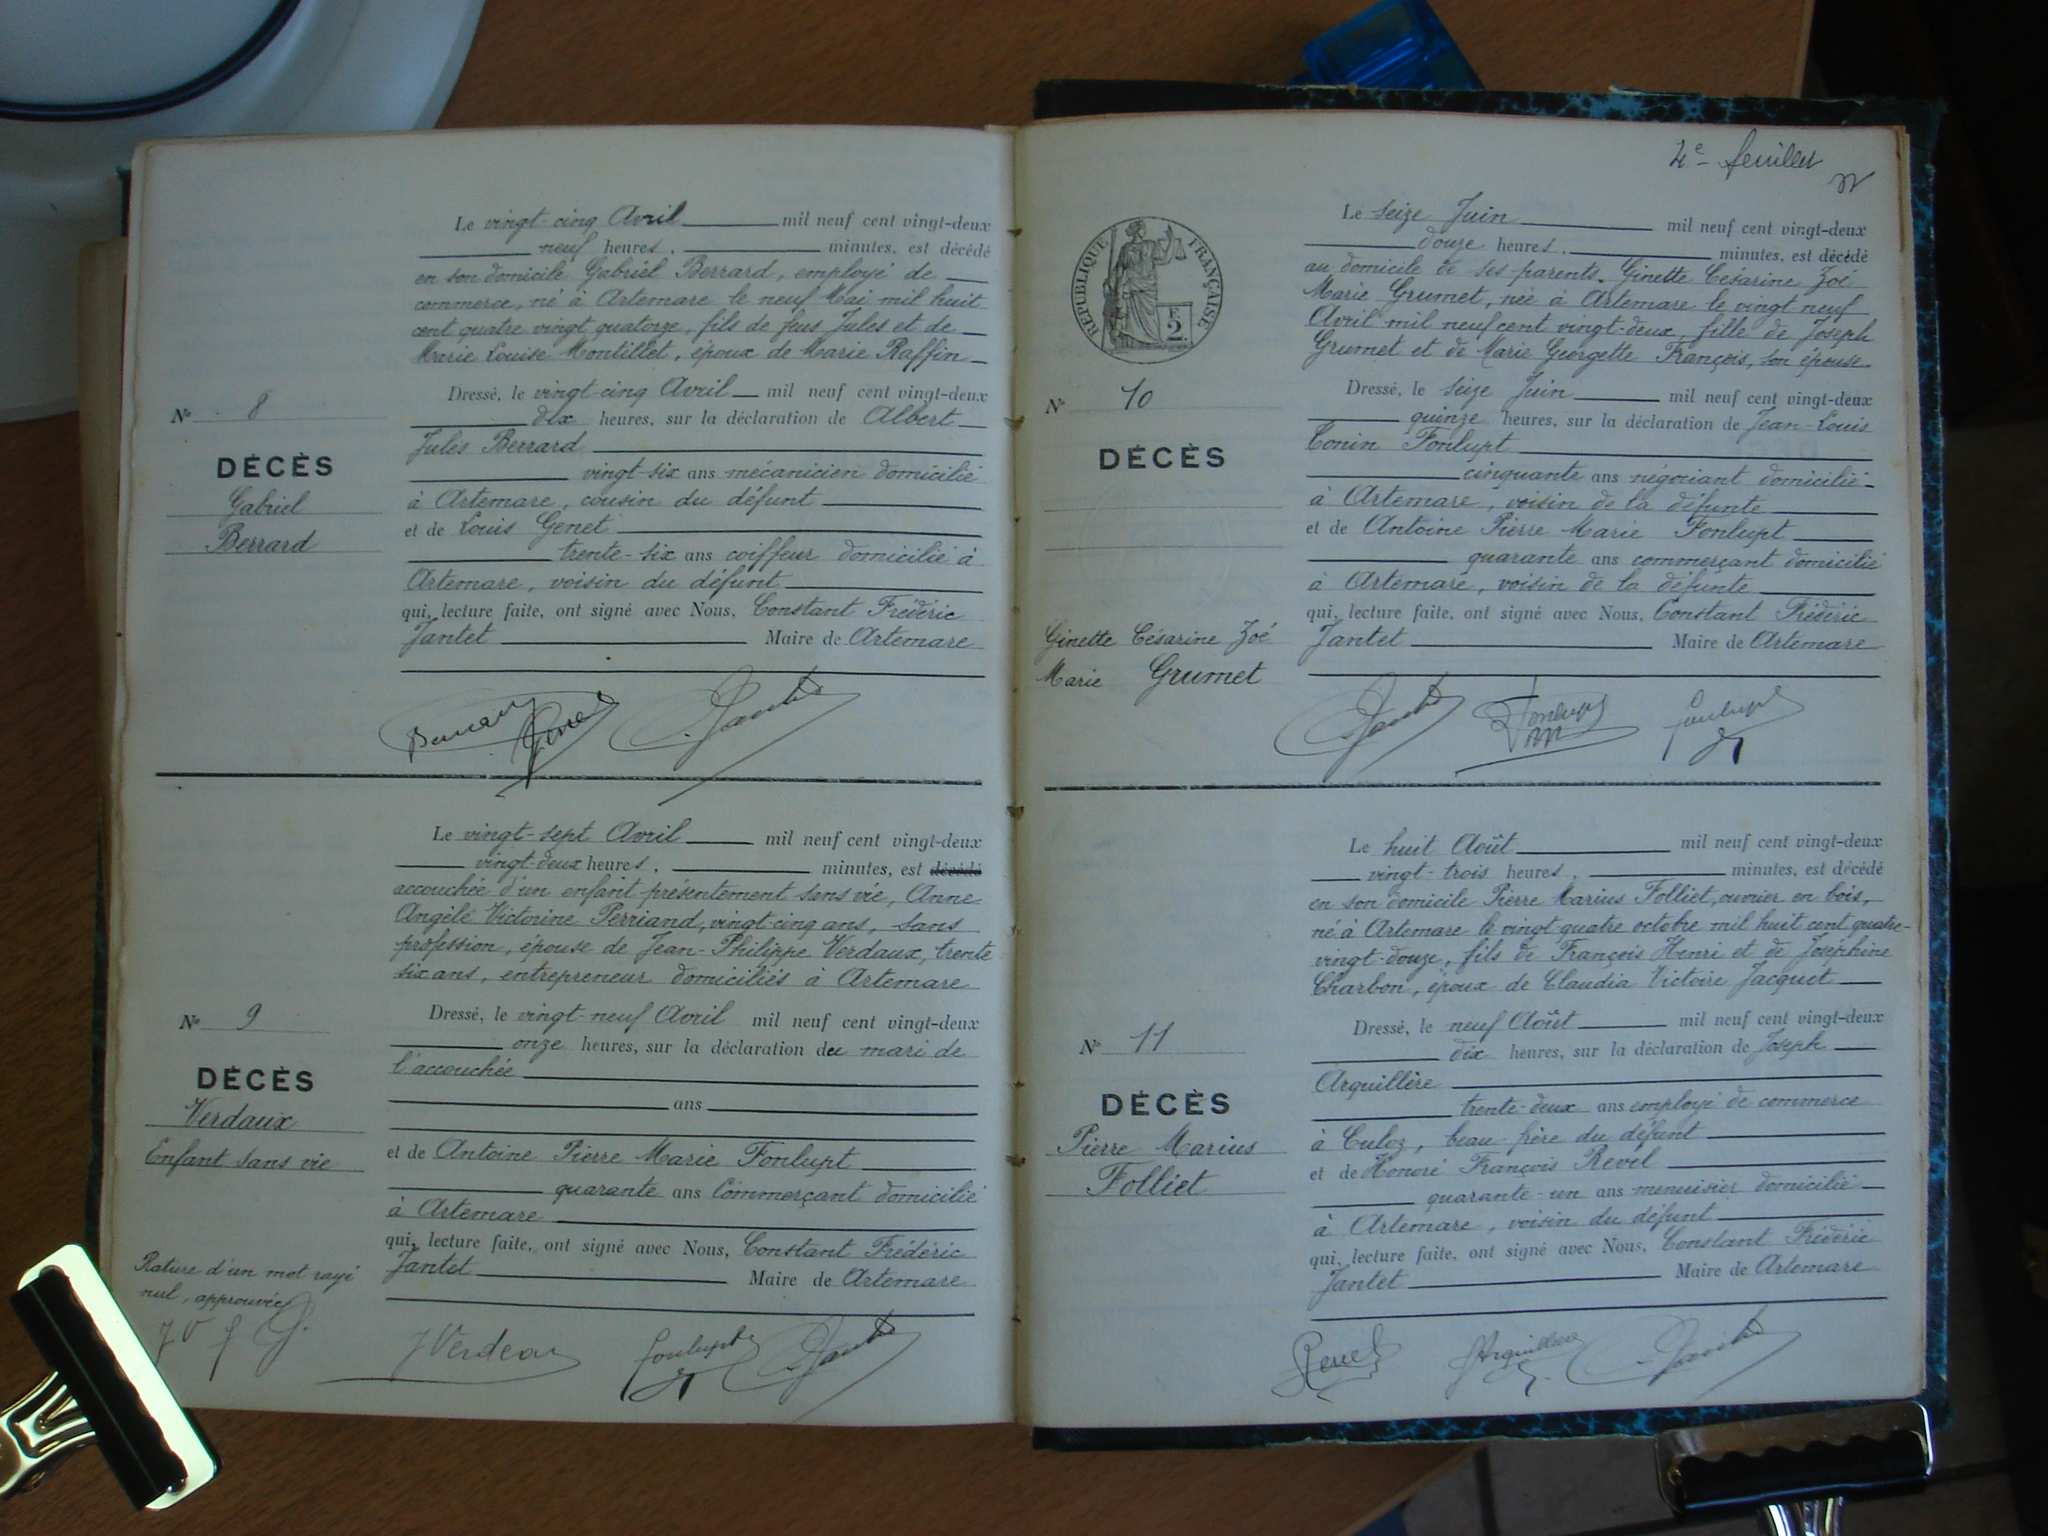 Le vingt-cinq Avril mil neuf cent vingt-deux
neuf heures, minutes, est décédé
en son domicile Gabriel Berrard, employé de
commerce, né à Artemare le neuf Mai mil huit
cent quatre vingt quatorze, fils de feus Jules et de
Marie Louise Montillet, époux de Marie Raffin
Dressé, le vingt-cinq Avril mil neuf cent vingt-deux
N° 8
dix heures, sur la déclaration de Albert
Jules Berrard
DÉCÈS
vingt-six ans mécanicien domicilié
Gabriel
à Artemare, cousin du défunt
Berrard
et de Louis Genet
trente-six ans coiffeur domicilié à
Artemare, voisin du défunt
qui, lecture faite, ont signé avec Nous, Constant Frédéric
Jantet Maire de Artemare
Le vingt-sept Avril mil neuf cent vingt-deux
vingt-deux heures, minutes, est décédé
accouchée d'un enfant présentement sans vie, Anne
Angèle Victorine Perriand, vingt-cinq ans, sans
profession, épouse de Jean-Philippe Verdaux, trente
six ans, entrepreneur domiciliés à Artemare
N° 9
Dressé, le vingt-neuf Avril mil neuf cent vingt-deux
onze heures, sur la déclaration du mari de
DÉCÈS
l'accouchée
Verdaux
ans
Enfant sans vie
et de Antoine Pierre Marie Fonlupt
quarante ans Commerçant domicilié
à Artemare
qui, lecture faite, ont signé avec Nous, Constant Frédéric
Jantet Maire de Artemare
Rature d'un mot rayé
nul, approuvée
JVerdeau Fonlupt Jantet
4e feuillet
RÉPUBLIQUE FRANÇAISE
2 F.
Le seize Juin mil neuf cent vingt-deux
douze heures, minutes, est décédé
au domicile de ses parents, Ginette Césarine Zoé
Marie Grumet, née à Artemare le vingt neuf
Avril mil neuf cent vingt-deux, fille de Joseph
Grumet et de Marie Georgette François, son épouse
N° 10
Dressé, le seize Juin mil neuf cent vingt-deux
quinze heures, sur la déclaration de Jean-Louis
Tonin Fonlupt
DÉCÈS
cinquante ans négociant domicilié
à Artemare, voisin de la défunte
et de Antoine Pierre Marie Fonlupt
quarante ans commerçant domicilié
à Artemare, voisin de la défunte
qui, lecture faite, ont signé avec Nous, Constant Frédéric
Ginette Césarine Zoé
Jantet Maire de Artemare
Marie Grumet
Jantet Fonlupt Fonlupt
Le huit Août mil neuf cent vingt-deux
vingt-trois heures, minutes, est décédé
en son domicile Pierre Marius Folliet, ouvrier en bois,
né à Artemare le vingt quatre octobre mil huit cent quatre-
vingt-douze, fils de François Henri et de Joséphine
Charbon, époux de Claudia Victoire Jacquet
N° 11
Dressé, le neuf Août mil neuf cent vingt-deux
dix heures, sur la déclaration de Joseph
Arquillère
DÉCÈS
trente-deux ans employé de commerce
Pierre Marius
à Culoz, beau frère du défunt
Folliet
et de Honoré François Revel
quarante-un ans menuisier domicilié
à Artemare, voisin du défunt
qui, lecture faite, ont signé avec Nous, Constant Frédéric
Jantet Maire de Artemare
Revel Arquillère Jantet